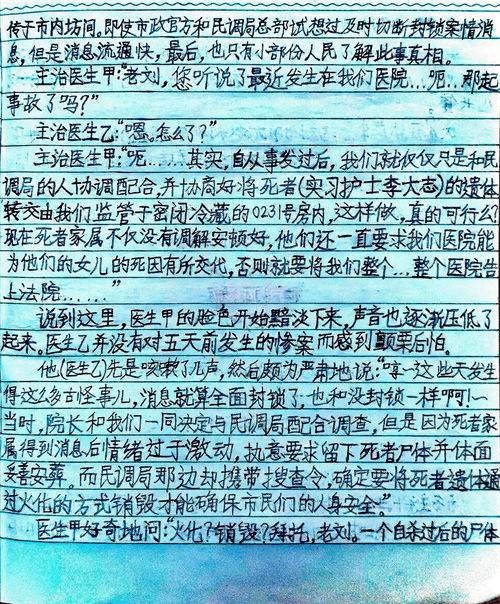 传于市内坊间。即使市政官方和民调局总部试想过及时切断封锁案情消
息，但是消息流通快，最后，也只有小部份人民了解此事真相。
主治医生甲："老刘，您听说了最近发生在我们医院…呃…那起
事故了吗？"
主治医生乙："嗯。怎么了？"
主治医生甲："呃……其实，自从事发过后，我们就仅仅只是和民
调局的人协调配合，并协商好将死者(实习护士李大志)的遗体
转交由我们监管于密闭冷藏的0231号房内，这样做，真的可行么？
现在死者家属不仅没有调解安顿好，他们还一直要求我们医院能
为他们的女儿的死因有所交代，否则就要将我们整个…整个医院告
上法院……"
说到这里，医生甲的脸色开始黯淡下来，声音也逐渐压低了
起来。医生乙并没有对五天前发生的惨案而感到颤栗后怕。
他(医生乙)先是咳嗽了几声，然后颇为严肃地说："哼~这些天发生
得这么多古怪事儿，消息就算全面封锁了，也和没封锁一样啊！~
当时，院长和我们一同决定与民调局配合调查，但是因为死者家
属得到消息后情绪过于激动，执意要求留下死者尸体并体面
妥善安葬。而民调局那边却携带搜查令，确定要将死者遗体通
过火化的方式销毁才能确保市民们的人身安全。"
医生甲好奇地问："火化？销毁？拜托，老刘。一个自杀过后的尸体